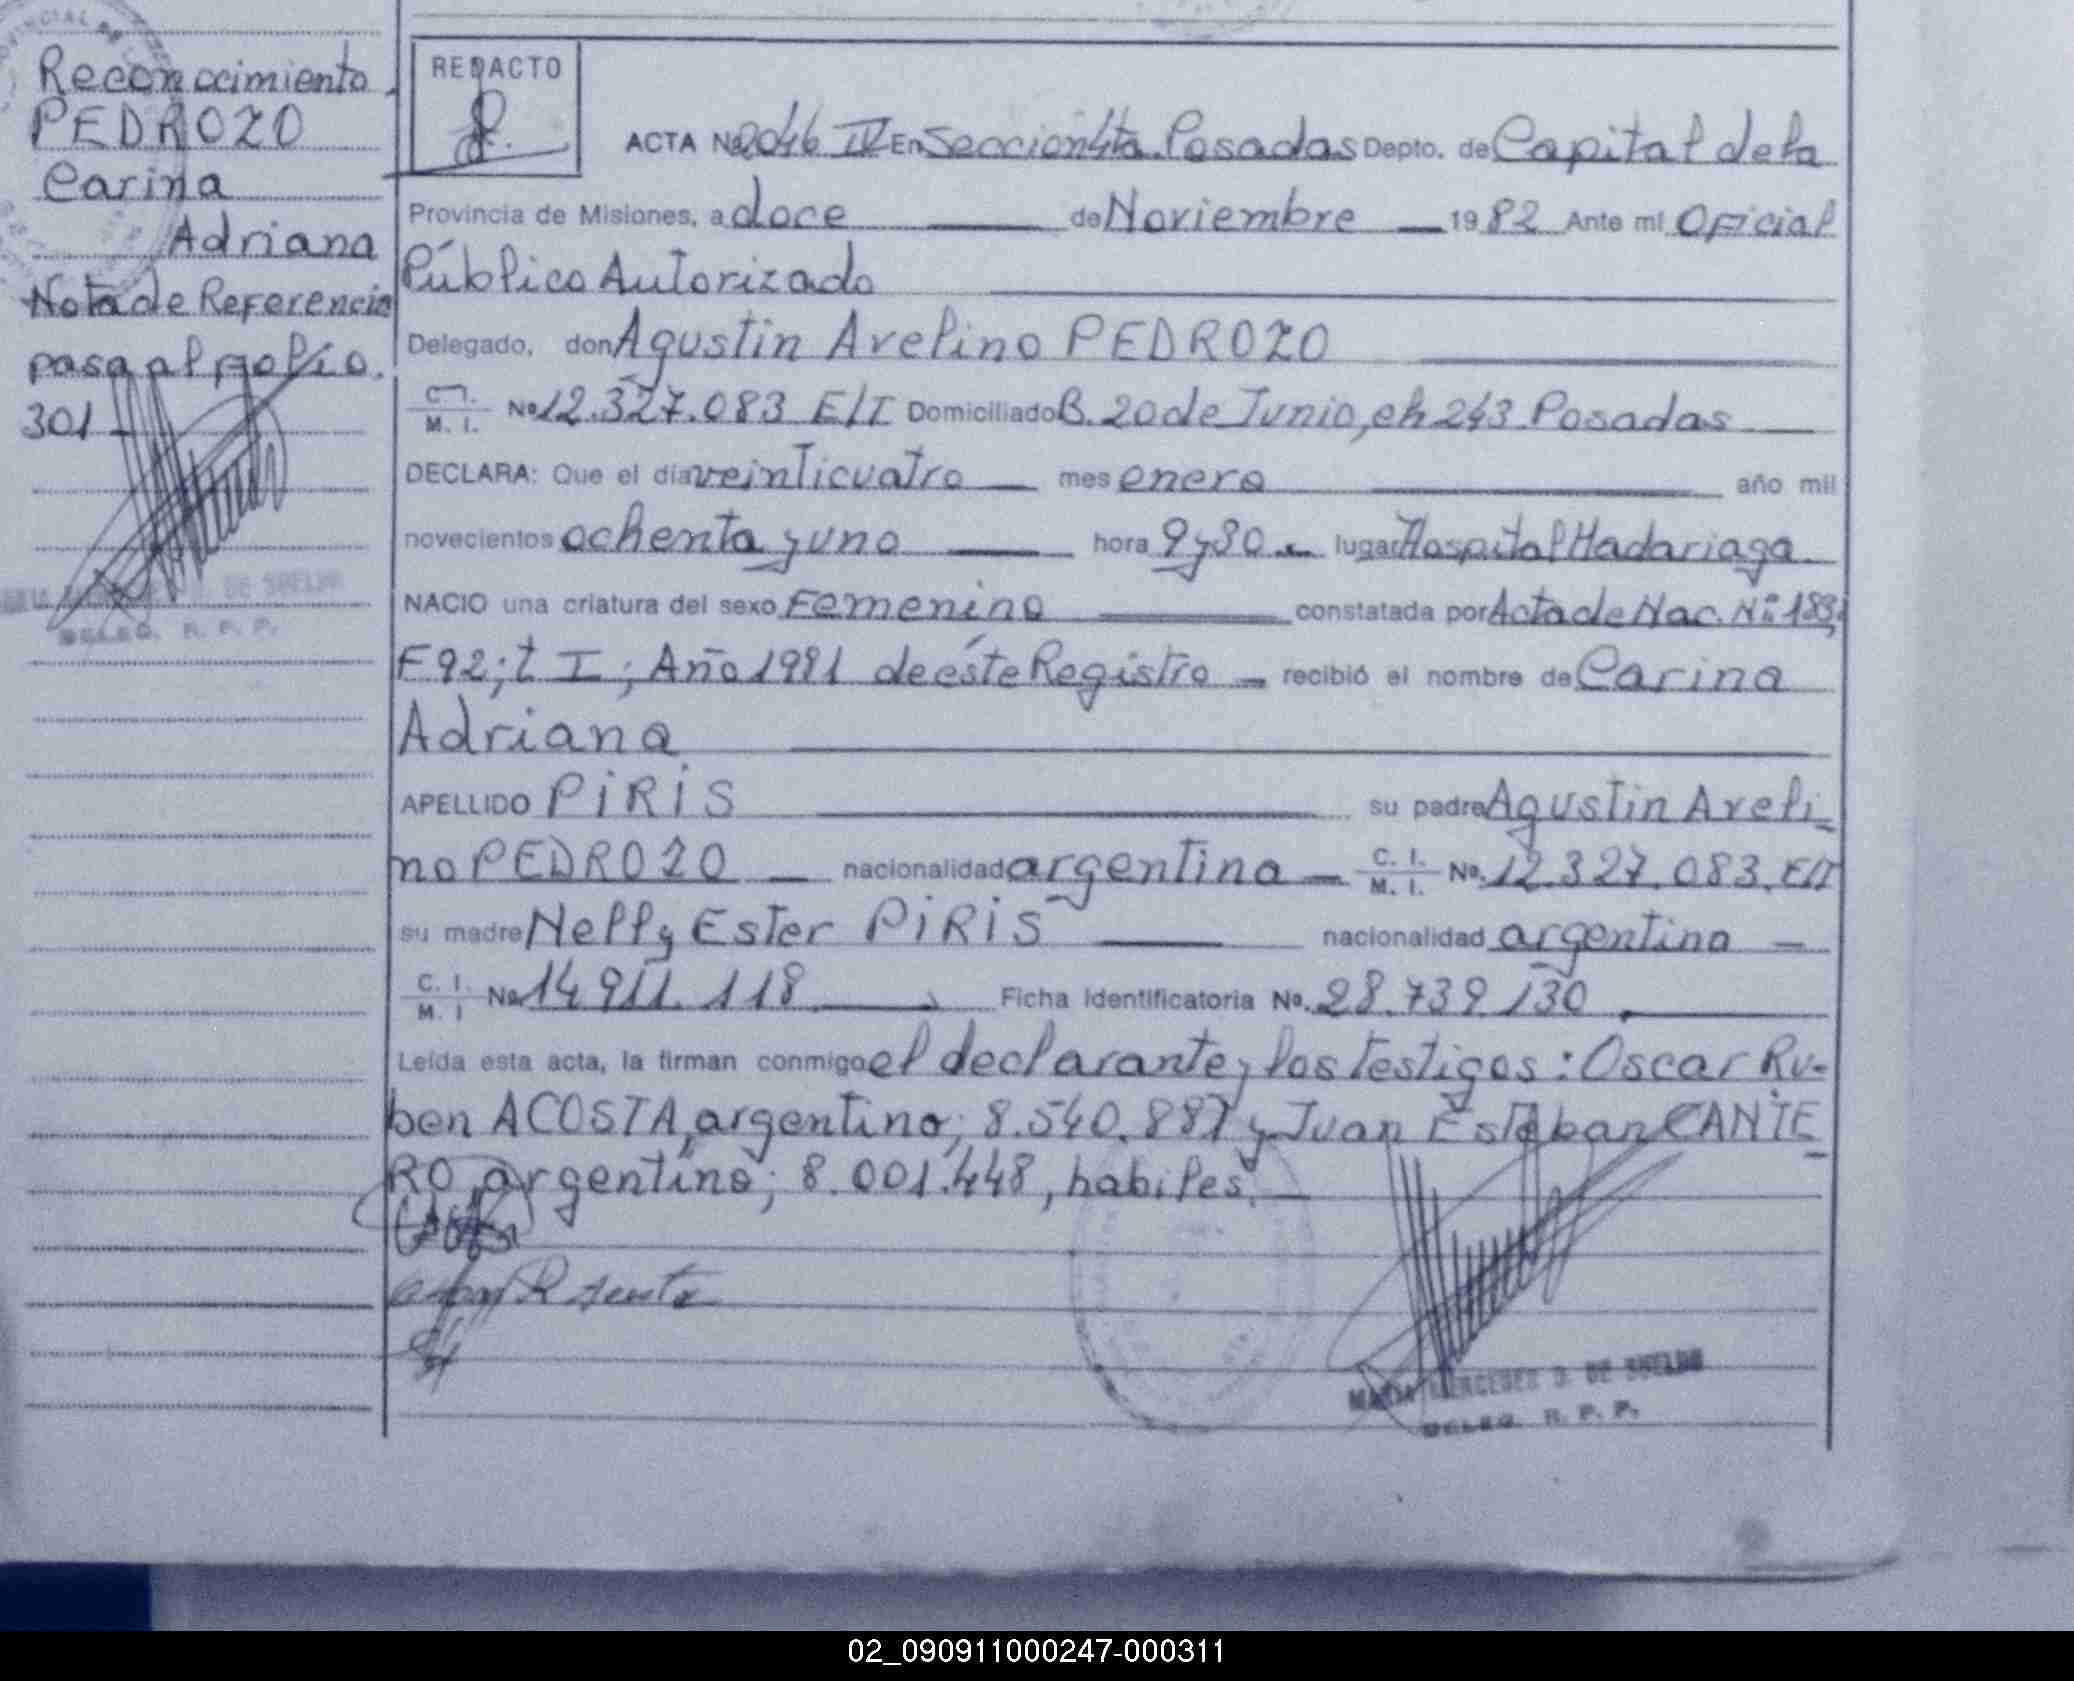 Reconocimiento
PEDROZO
Carina
Adriana
Nota de Referencia
pasa al folio.
301
DE SUELDO
DELEG. R. P. P.
REDACTO
ACTA No 2046 IV En Seccion 4ta. Posadas Depto. de Capital de la
Provincia de Misiones, a doce de Noviembre 1982 Ante mi Oficial
Público Autorizado
Delegado, don Agustin Avelino PEDROZO
C. I.
M. I. No 12.327.083 E/T Domiciliado B. 20 de Junio, ch 243. Posadas
DECLARA: Que el día veinticuatro mes enero año mil
novecientos ochenta y uno hora 9 y 30 lugar Hospital Madariaga
NACIO una criatura del sexo Femenino constatada por Acta de Nac. Nº 183;
F 92; t I; Año 1981 de éste Registro recibió el nombre de Carina
Adriana
APELLIDO PIRIS su padre Agustin Aveli-
no PEDROZO nacionalidad argentina C. I.
M. I. No. 12.327.083. E/T
su madre Nelly Ester PIRIS nacionalidad argentina
C. I.
M. I No 14.911.118 Ficha Identificatoria No. 28.739.130
Leída esta acta, la firman conmigo el declarante y los testigos: Oscar Ru-
ben ACOSTA, argentino; 8.540.887 y Juan Esteban CANTE
RO, argentino; 8.001.448, habiles.
MARIA MERCEDES D. DE SUELDO
DELEG. R. P. P.
02_090911000247-000311